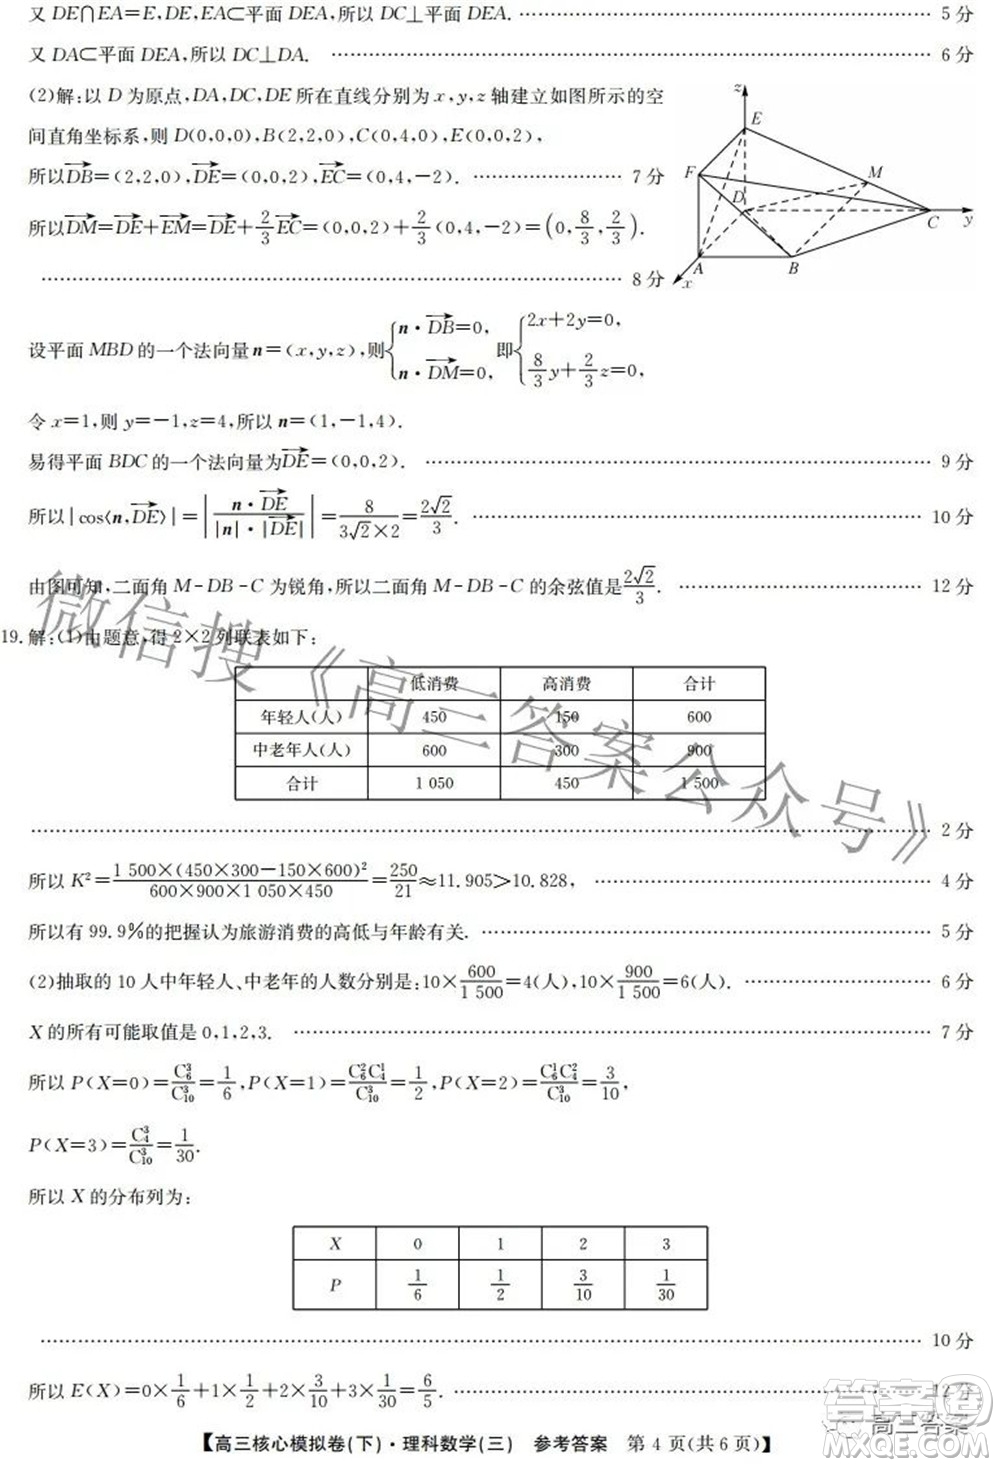 又 DE∩EA=E,DE,EA⊂平面 DEA,所以 DC⊥平面 DEA. …… 5 分
又 DA⊂平面 DEA,所以 DC⊥DA. …… 6 分
(2)解:以 D 为原点,DA,DC,DE 所在直线分别为 x,y,z 轴建立如图所示的空
间直角坐标系,则 D(0,0,0),B(2,2,0),C(0,4,0),E(0,0,2),
所以DB=(2,2,0),DE=(0,0,2),EC=(0,4,-2). …… 7 分
所以DM=DE+EM=DE+2/3EC=(0,0,2)+2/3(0,4,-2)=(0,8/3,2/3).
…… 8 分
z
E
F
M
D
C
y
A
B
x
设平面 MBD 的一个法向量 n=(x,y,z),则{n·DB=0, n·DM=0, 即{2x+2y=0, 8/3y+2/3z=0,
令 x=1,则 y=-1,z=4,所以 n=(1,-1,4).
易得平面 BDC 的一个法向量为DE=(0,0,2). …… 9 分
所以|cos⟨n,DE⟩|=|n·DE/|n|·|DE||=8/3√2×2=2√2/3. …… 10 分
由图可知,二面角 M-DB-C 为锐角,所以二面角 M-DB-C 的余弦值是2√2/3. …… 12 分
19.解:(1)由题意,得 2×2 列联表如下:
低消费 高消费 合计
年轻人(人) 450 150 600
中老年人(人) 600 300 900
合计 1 050 450 1 500
…… 2 分
所以 K²=1 500×(450×300-150×600)²/600×900×1 050×450=250/21≈11.905>10.828, …… 4 分
所以有 99.9%的把握认为旅游消费的高低与年龄有关. …… 5 分
(2)抽取的 10 人中年轻人、中老年的人数分别是:10×600/1 500=4(人),10×900/1 500=6(人). …… 6 分
X 的所有可能取值是 0,1,2,3. …… 7 分
所以 P(X=0)=C₆³/C₁₀³=1/6,P(X=1)=C₆²C₄¹/C₁₀³=1/2,P(X=2)=C₆¹C₄²/C₁₀³=3/10,
P(X=3)=C₄³/C₁₀³=1/30.
所以 X 的分布列为:
X 0 1 2 3
P 1/6 1/2 3/10 1/30
…… 10 分
所以 E(X)=0×1/6+1×1/2+2×3/10+3×1/30=6/5. …… 12 分
【高三核心模拟卷(下)·理科数学(三) 参考答案 第 4 页(共 6 页)】
微信搜《高三答案公众号》
高三答案
答案圈
MXQE.COM